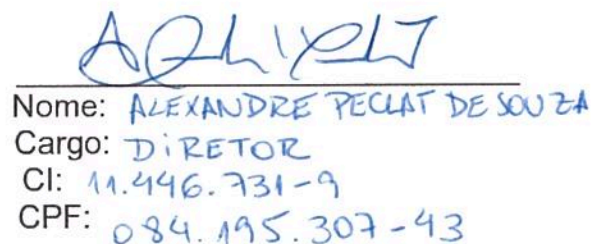 Nome: ALEXANDRE PECLAT DE SOUZA
Cargo: DIRETOR
CI: 11.446.731-9
CPF: 084.195.307-43